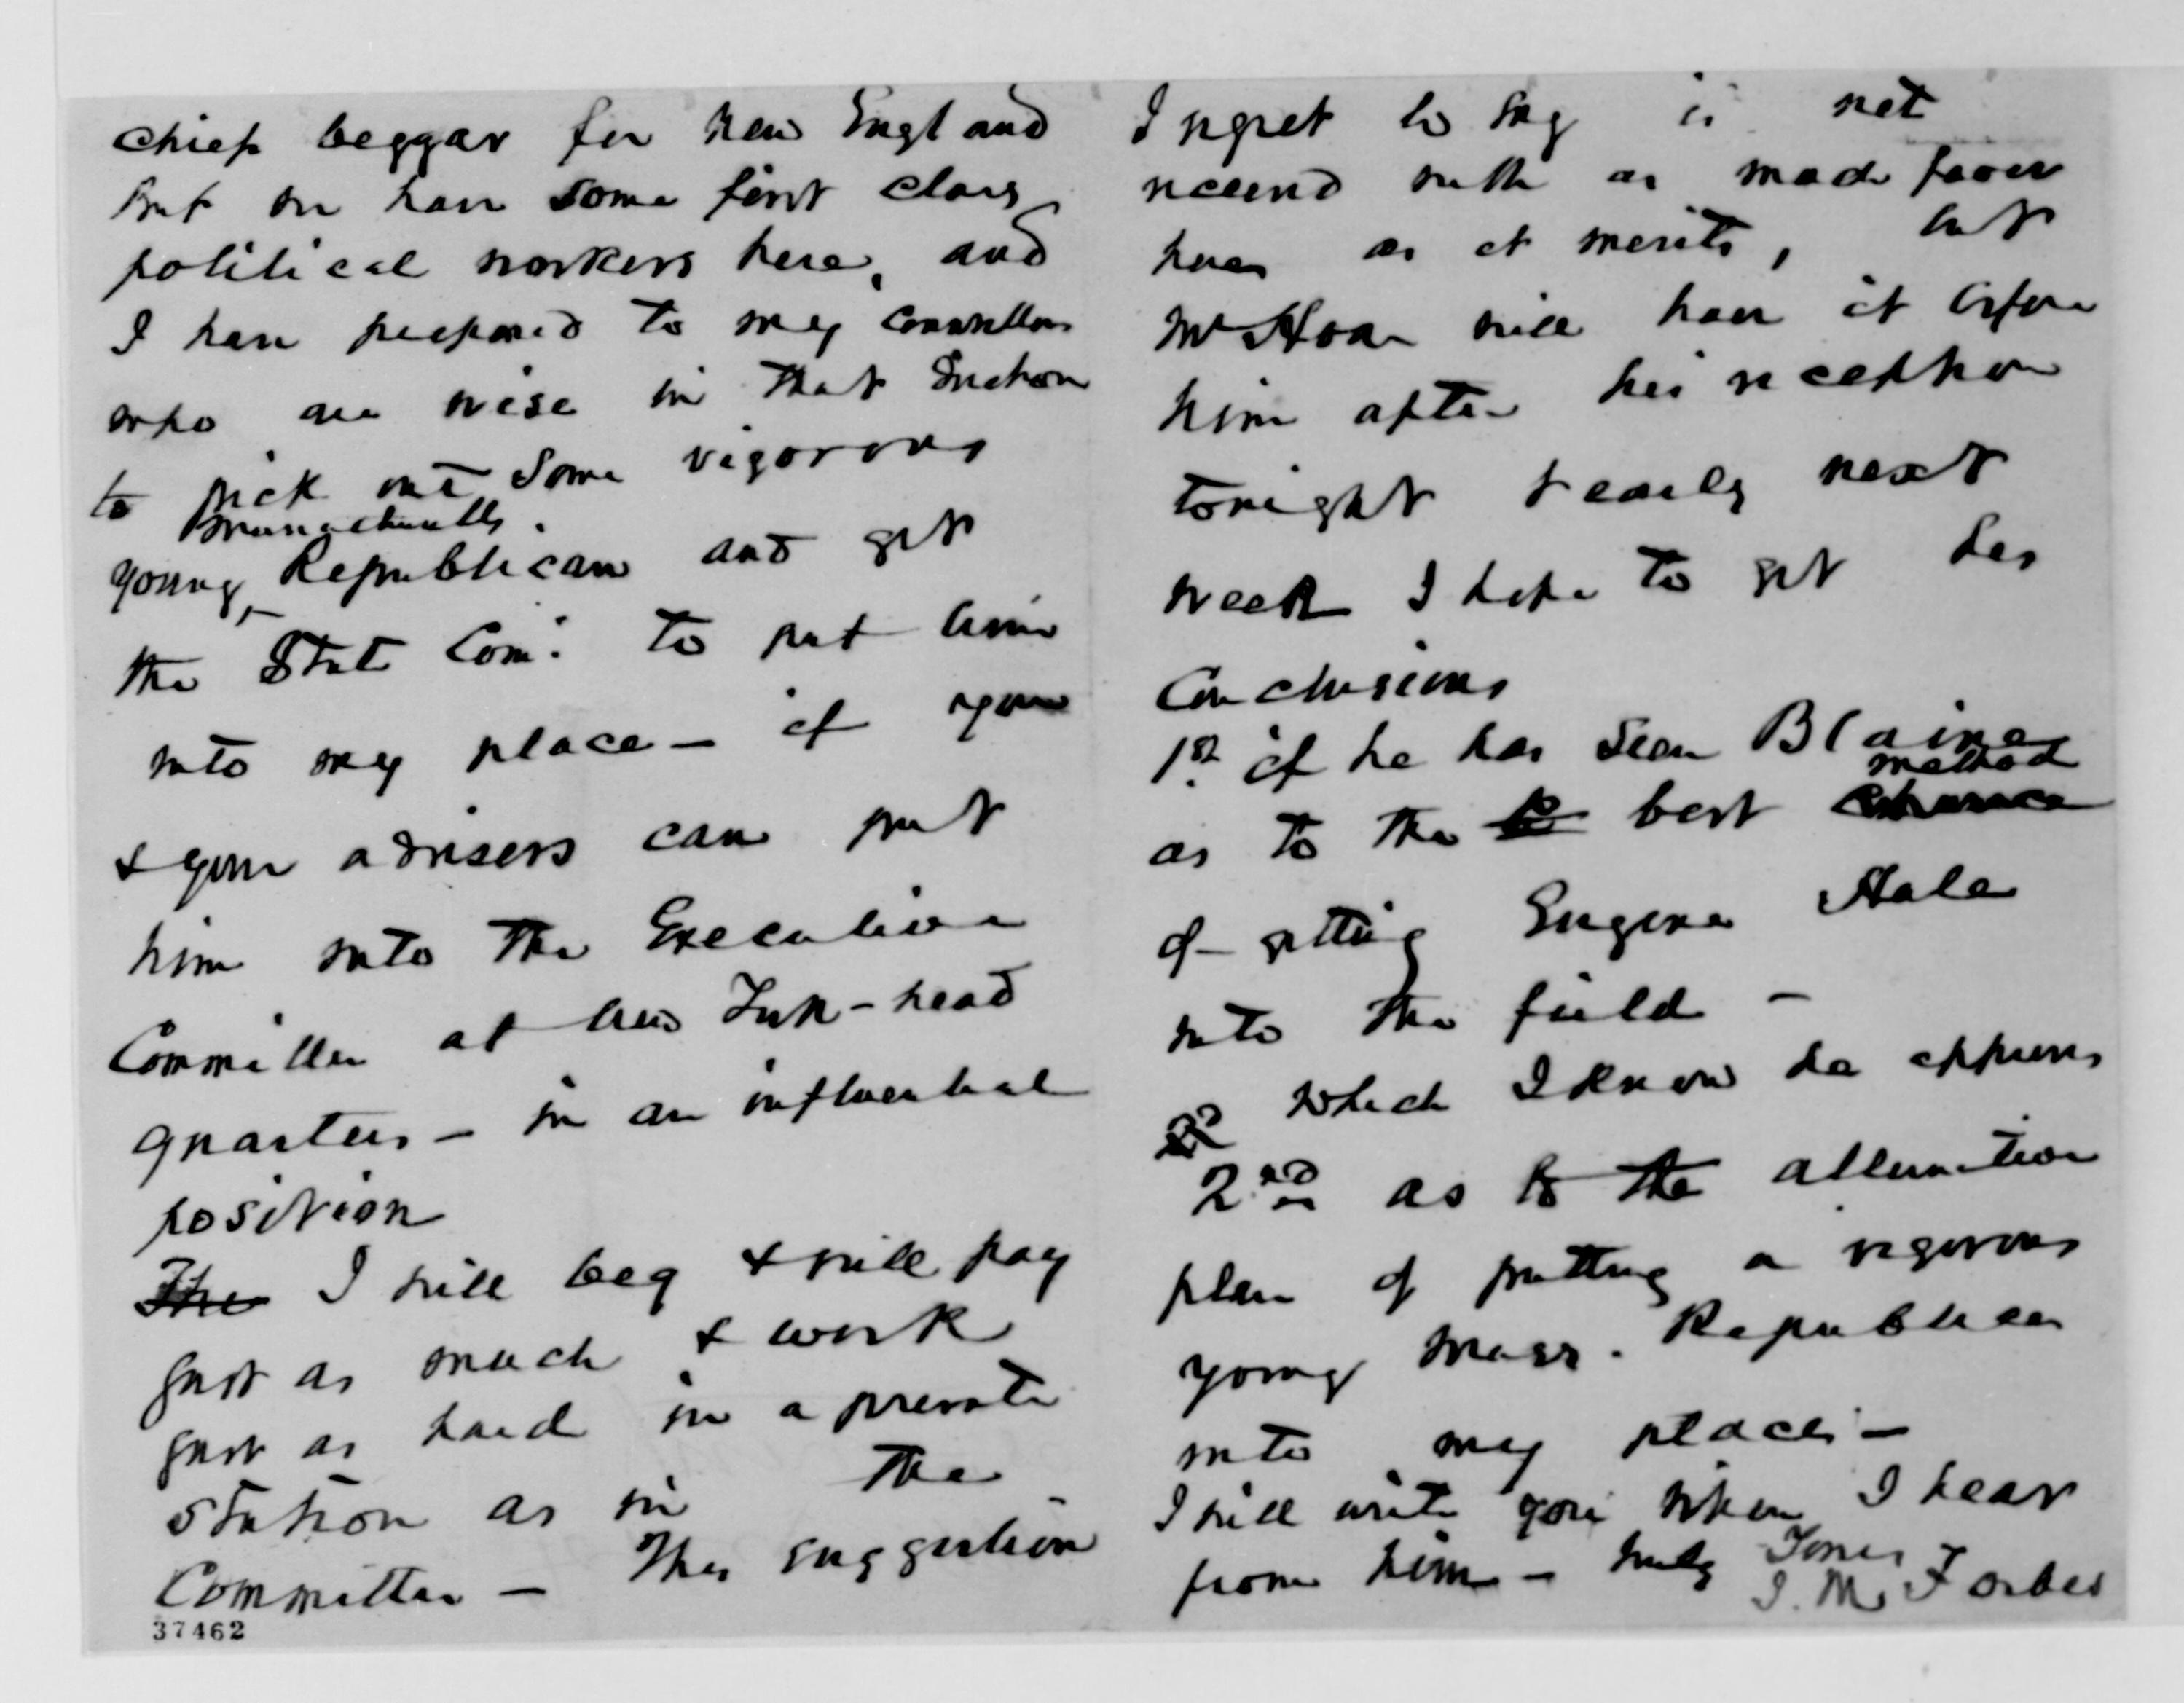 chief beggar for New England
but we have some first class
political workers here, and
I have proposed to my counsellors
who are wise in that
to pick out some vigorous
Massachusetts
young, Republican and get
the State Com: to put him
into my place — if you
& your advisers can put
him into the Executive
Committee at New York - head
quarters — in an influential
position
The I will beg & will pay
just as much & work
just as hard in a private
station as in the
Committee — This suggestion
37462
I regret to say is not
received with as much favor
here as it merits, but
Mr Hoar will have it before
him after his reception
tonight & early next
week I hope to get his
Conclusions
1st. if he has seen Blaine
method
as to the best
of getting Eugene Hale
into the field —
which I know he approves
2nd as to the alternative
plan of putting a vigorous
young Mass. Republican
into my place —
I will write you when I hear
from him — truly Yours
J. M. Forbes